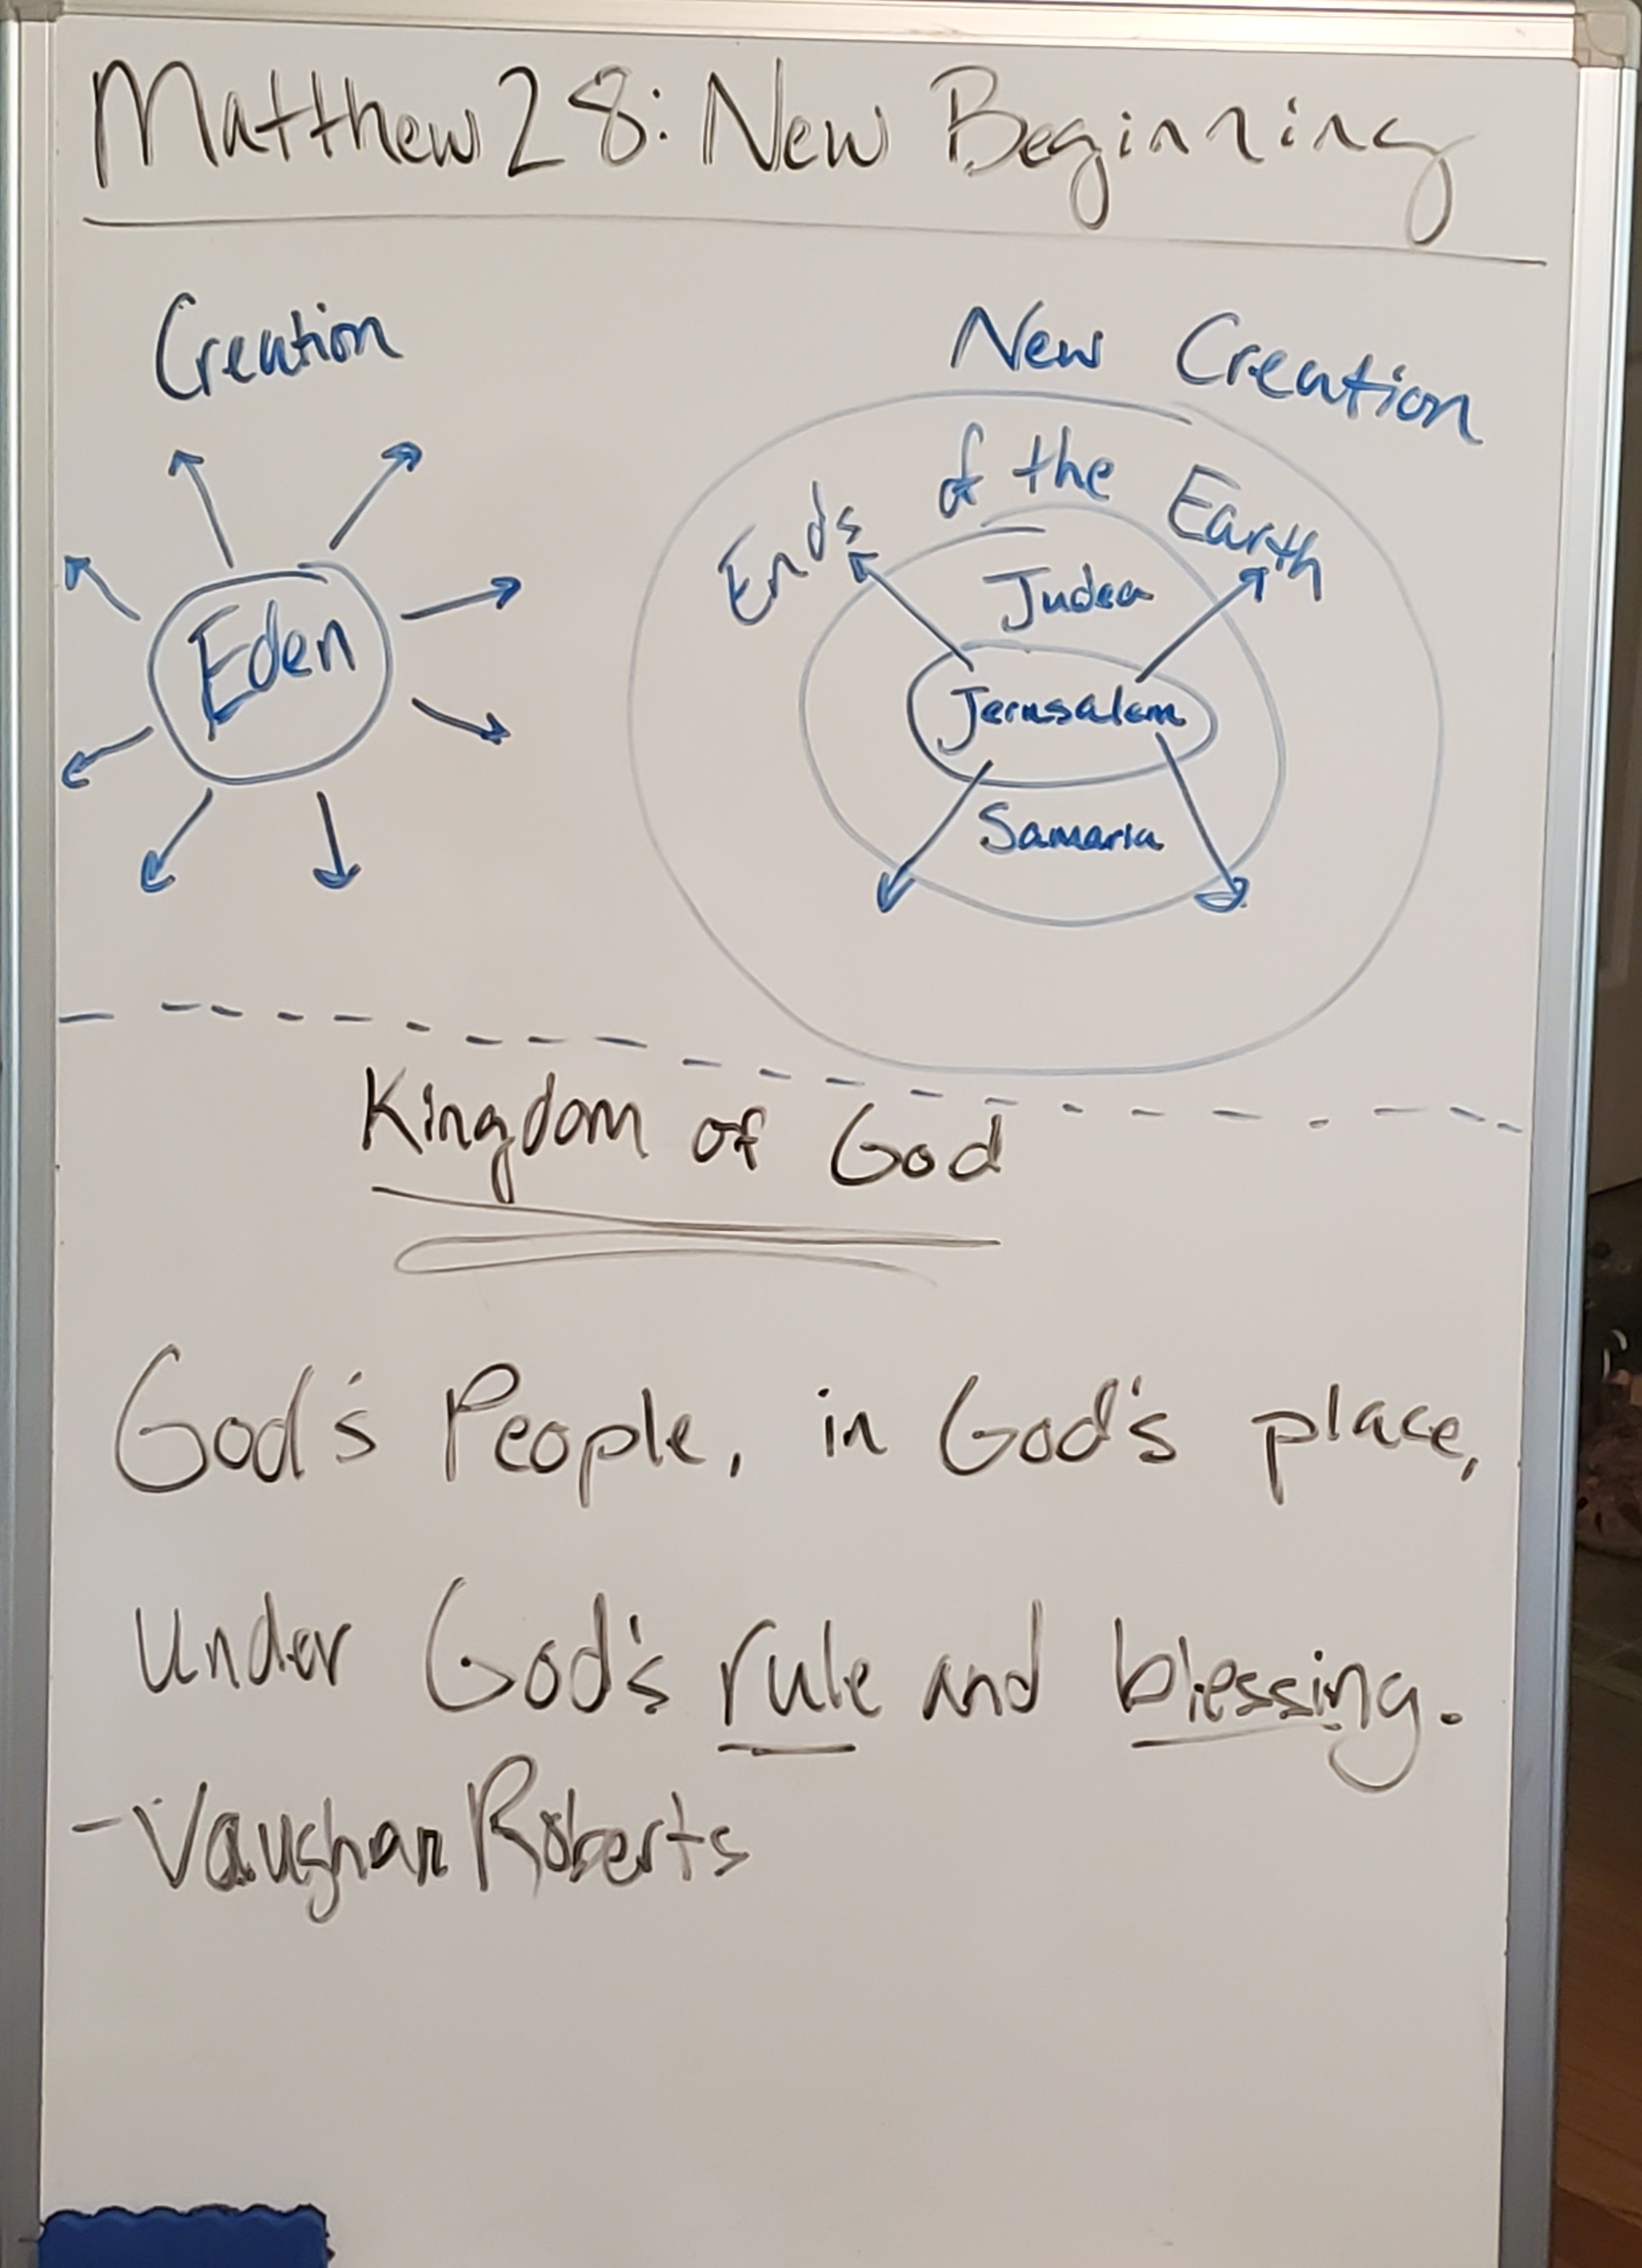 Matthew 28: New Beginning
Creation
Eden
New Creation
Ends of the Earth
Judea
Jerusalem
Samaria
Kingdom of God
God's People, in God's place,
Under God's rule and blessing.
- Vaughan Roberts